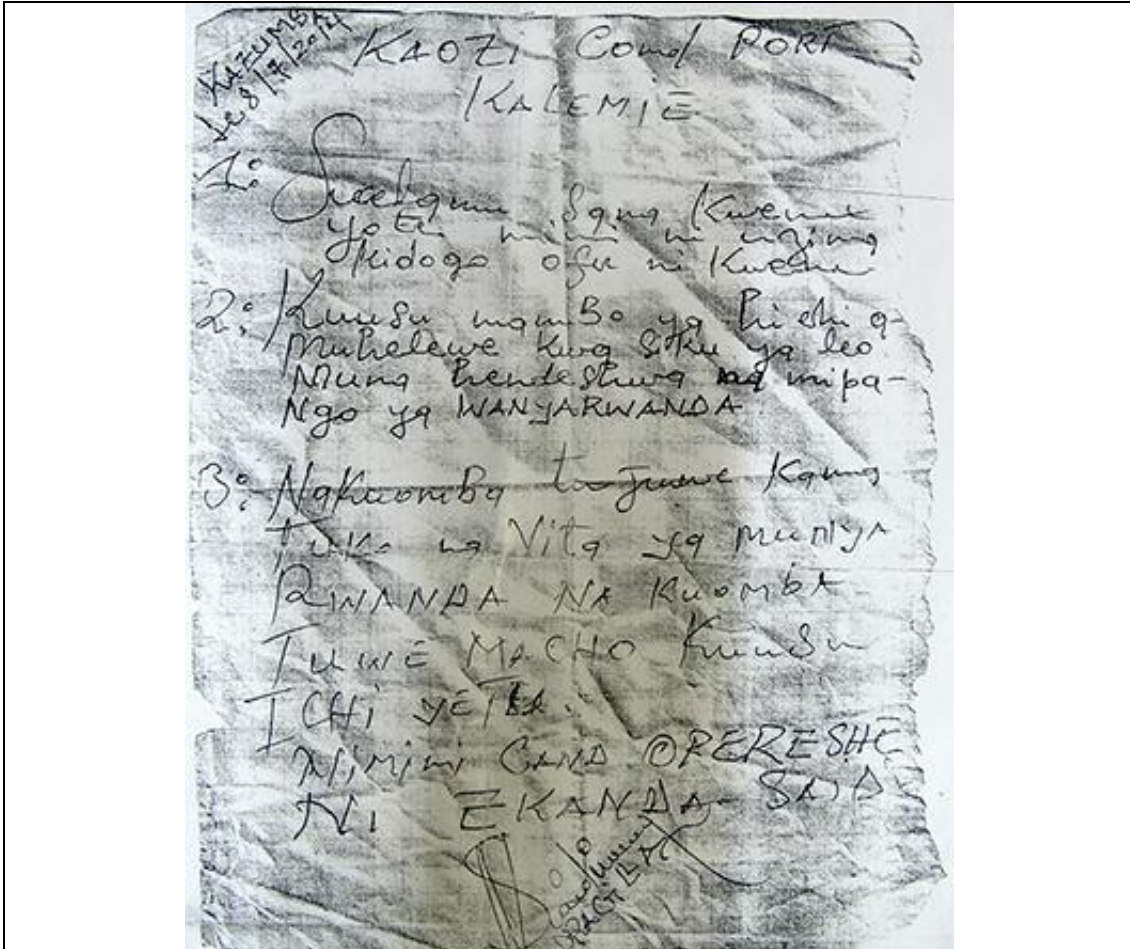 KAZUMBA
Le 8/7/2014
KAOZI Comd PORT
KALEMIE
1: Salamu Sana Kwenu
yote mimi ni mzima
Kidogo ofu ni Kwenu
2: Kuusu mamBo ya hi chi a-
muhelewe Kwa Siku ya leo
Muna hendeshwa na mipa-
Ngo ya WANYARWANDA
3: NaKuomBa tujuwe Kama
Tuko na Vita ya muNyA
RWANDA NA KuombA
TuWE MACHO Kuusu
ICHi YETU.
Nimimi OPERESHE
Ni EKANDA- SAID